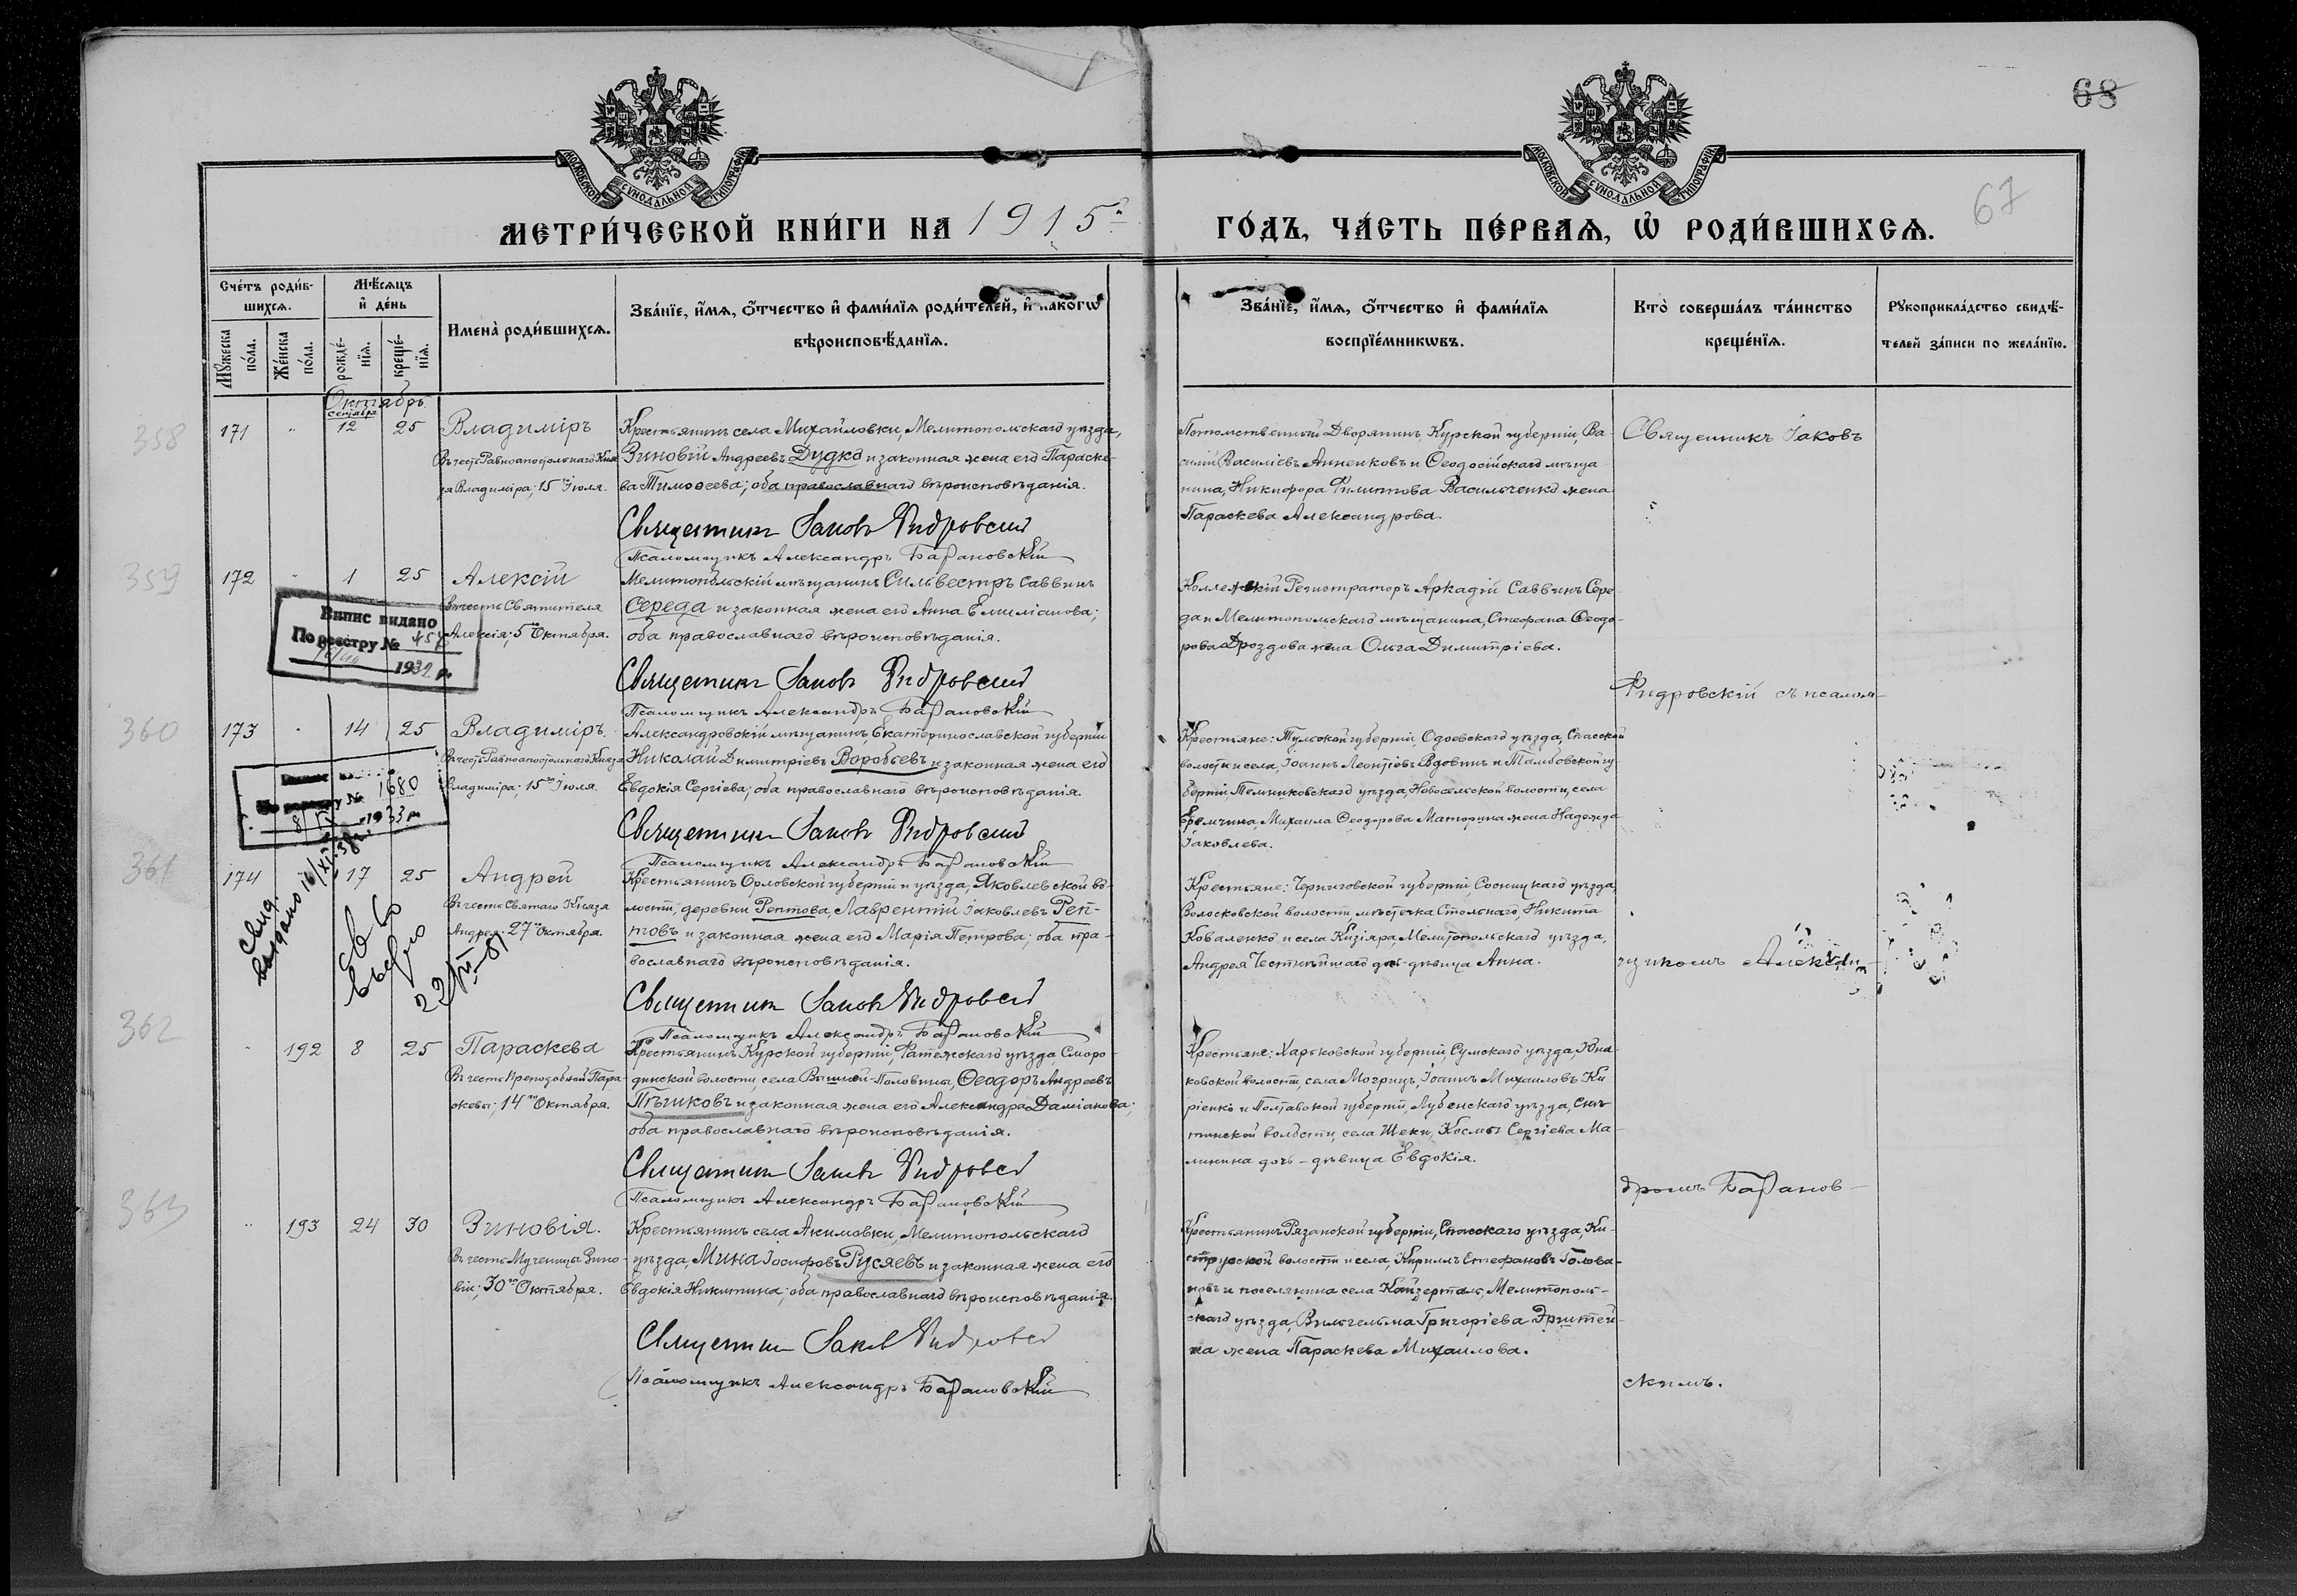 68
67
МОСКОВСКОЙ СѴНОДАЛЬНОЙ ТИПОГРАФІИ
МОСКОВСКОЙ СѴНОДАЛЬНОЙ ТИПОГРАФІИ
МЕТРИ́ЧЕСКОЙ КНИ́ГИ НА 1915й
ГО́ДЪ, ЧА́СТЬ ПЕ́РВАЯ, Ѿ РОДИ́ВШИХСЯ.
Сче́тъ роди́в-
шихся.
Мꙋжеска по́ла.
Же́нска по́ла.
Мѣ́сяцъ и҆ де́нь
рожде́-нїя.
креще́-нїя.
Имена̀ роди́вшихся.
Зва́нїе, и҆́мя, ѻ҆́тчество и҆ фами́лїя роди́телей, и҆ какогѡ
вѣроисповѣ́данїя.
Зва́нїе, и҆́мя, ѻ҆́тчество и҆ фами́лїя
воспрїе́мникѡвъ.
Кто̀ соверша́лъ та́инство
креще́нїя.
Рꙋкоприкла́дство свидѣ́-
телей за́писи по жела́нїю.
Октябрь
358
171
сентября
12 25
Владиміръ
Въ честь Равноапостольнаго Кня
зя Владиміра; 15го Іюля.
Крестьянинъ села Михайловки, Мелитопольскаго уѣзда,
Зиновій Андреевъ Дудко и законная жена его Параске-
ва Тимоѳеева; оба православнаго вѣроисповѣданія.
Священникъ Іаковъ Ридровскій
Псаломщикъ Александръ Барановскій
Потомственный Дворянинъ, Курской губерніи, Ва
силій Василіевъ Анненковъ и Ѳеодосійскаго мѣща-
нина, Никифора Филиппова Васильченко жена
Параскева Александрова.
Священникъ Іаковъ
359
172 1 25
Алексій
Въ честь Святителя
Алексія; 5го Октября.
Випис видано
По реєстру № 457
1932 р.
Мелитопольскій мѣщанинъ Сильвестръ Саввинъ
Середа и законная жена его Анна Емиліанова;
оба православнаго вѣроисповѣданія.
Священникъ Іаковъ Ридровскій
Псаломщикъ Александръ Барановскій
Коллежскій Регистраторъ Аркадій Саввинъ Сере
да и Мелитопольскаго мѣщанина, Стефана Ѳеодо-
рова Дроздова жена Ольга Димитріева.
Ридровскій съ псалом-
360
173 14 25
Владиміръ.
Въ честь Равноапостольнаго Князя
Владиміра; 15го Іюля.
По реєстру № 1680
1933 р
Александровскій мѣщанинъ, Екатеринославской губерніи
Николай Димитріевъ Воробьевъ и законная жена его
Евдокія Сергіева; оба православнаго вѣроисповѣданія.
Священникъ Іаковъ Ридровскій
Псаломщикъ Александръ Барановскій
Крестьяне: Тульской губерніи, Одоевскаго уѣзда, Спасской
волости и села, Іоаннъ Леонтіевъ Вдовинъ и Тамбовской гу
берніи, Темниковскаго уѣзда, Новосельской волости, села
Еремчина, Михаила Ѳеодорова Маторина жена Надежда
Іаковлева.
361
174 17 25
Андрей
Въ честь Святаго Князя
Андрея; 27го Октября.
Крестьянинъ Орловской губерніи и уѣзда, Яковлевской во-
лости, деревни Рептова, Лаврентій Іаковлевъ Реп-
товъ и законная жена его Марія Петрова; оба пра-
вославнаго вѣроисповѣданія.
Священникъ Іаковъ Ридровскій
Псаломщикъ Александръ Барановскій
Крестьяне: Черниговской губерніи, Сосницкаго уѣзда,
Волосковской волости, мѣстечка Стольнаго, Никита
Коваленко и села Кизіяра, Мелитопольскаго уѣзда,
Андрея Честнѣйшаго дочь-дѣвица Анна.
щикомъ Алексан-
362
192 8 25
Параскева
Въ честь Преподобной Пара-
скевы; 14го Октября.
Крестьянинъ Курской губерніи, Фатежскаго уѣзда, Сморо-
динской волости, села Вышней-Половины, Ѳеодоръ Андреевъ
Пѣчиковъ и законная жена его Александра Даміанова;
оба православнаго вѣроисповѣданія.
Священникъ Іаковъ Ридровскій
Псаломщикъ Александръ Барановскій
Крестьяне: Харьковской губерніи, Сумскаго уѣзда, Юна-
ковской волости, села Могрицъ, Іоаннъ Михаиловъ Ки
ріенко и Полтавской губерніи, Лубенскаго уѣзда, Снѣ-
тинской волости, села Шеки, Космы Сергіева Ма-
линина дочь-дѣвица Евдокія.
дромъ Баранов-
363
193 24 30
Зиновія.
Въ честь Мученицы Зино-
віи; 30го Октября.
Крестьянинъ села Акимовки, Мелитопольскаго
уѣзда, Мина Іосифовъ Русяевъ и законная жена его
Евдокія Никитина; оба православнаго вѣроисповѣданія.
Священникъ Іаковъ Ридровскій
Псаломщикъ Александръ Барановскій
Крестьянинъ Рязанской губерніи, Спасскаго уѣзда, Ки-
струской волости и села, Кириллъ Стефановъ Голова-
новъ и поселянина села Кайзерталь, Мелитополь-
скаго уѣзда, Вильгельма Григоріева Эриштей-
на жена Параскева Михаилова.
скимъ.